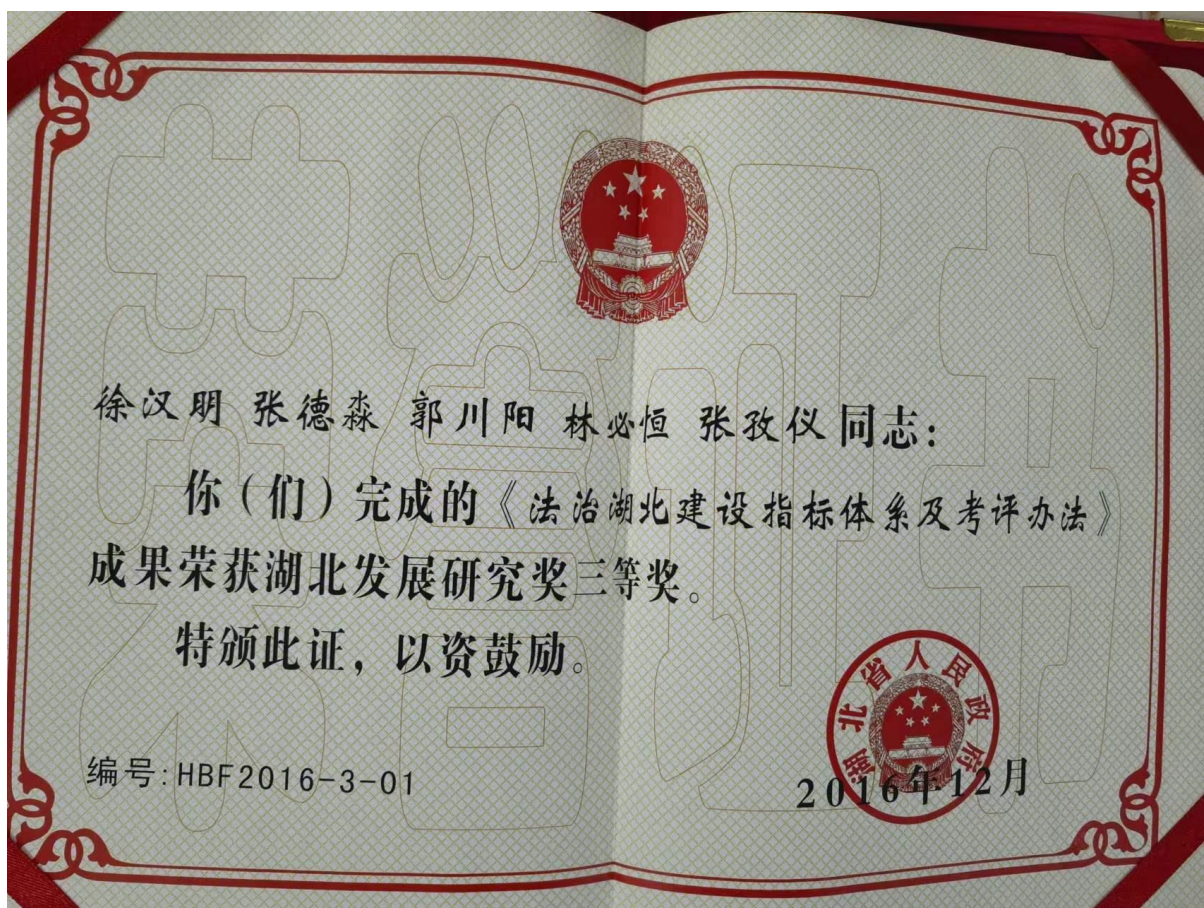 徐汉明 张德淼 郭川阳 林必恒 张孜仪 同志:
你(们)完成的《法治湖北建设指标体系及考评办法》
成果荣获湖北发展研究奖三等奖。
特颁此证,以资鼓励。
湖北省人民政府
编号:HBF2016-3-01
2016年12月
荣誉证书